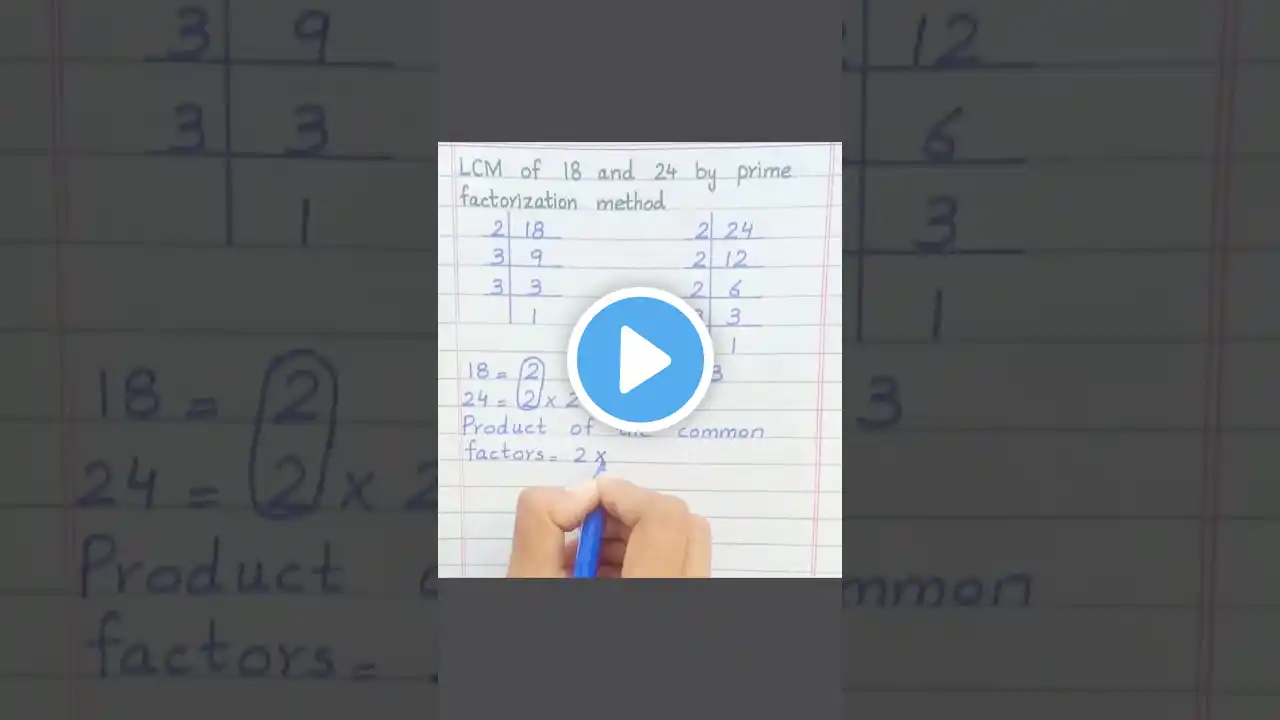 LCM of 18 and 24 by prime
factorization method
2 18
3 9
3 3
1
2 24
2 12
2 6
3
1
18 = 2 3
24 = 2 x 2
Product of the common
factors = 2 x